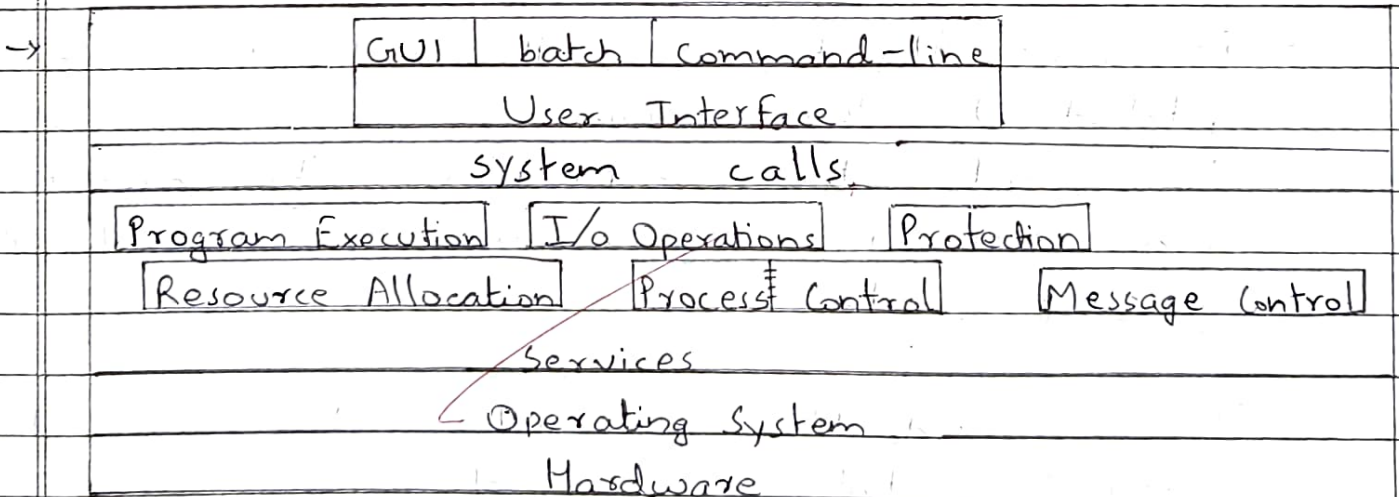 → GUI batch Command-line
User Interface
system calls.
Program Execution I/o Operations Protection
Resource Allocation Process Control Message Control
Services
Operating System
Hardware